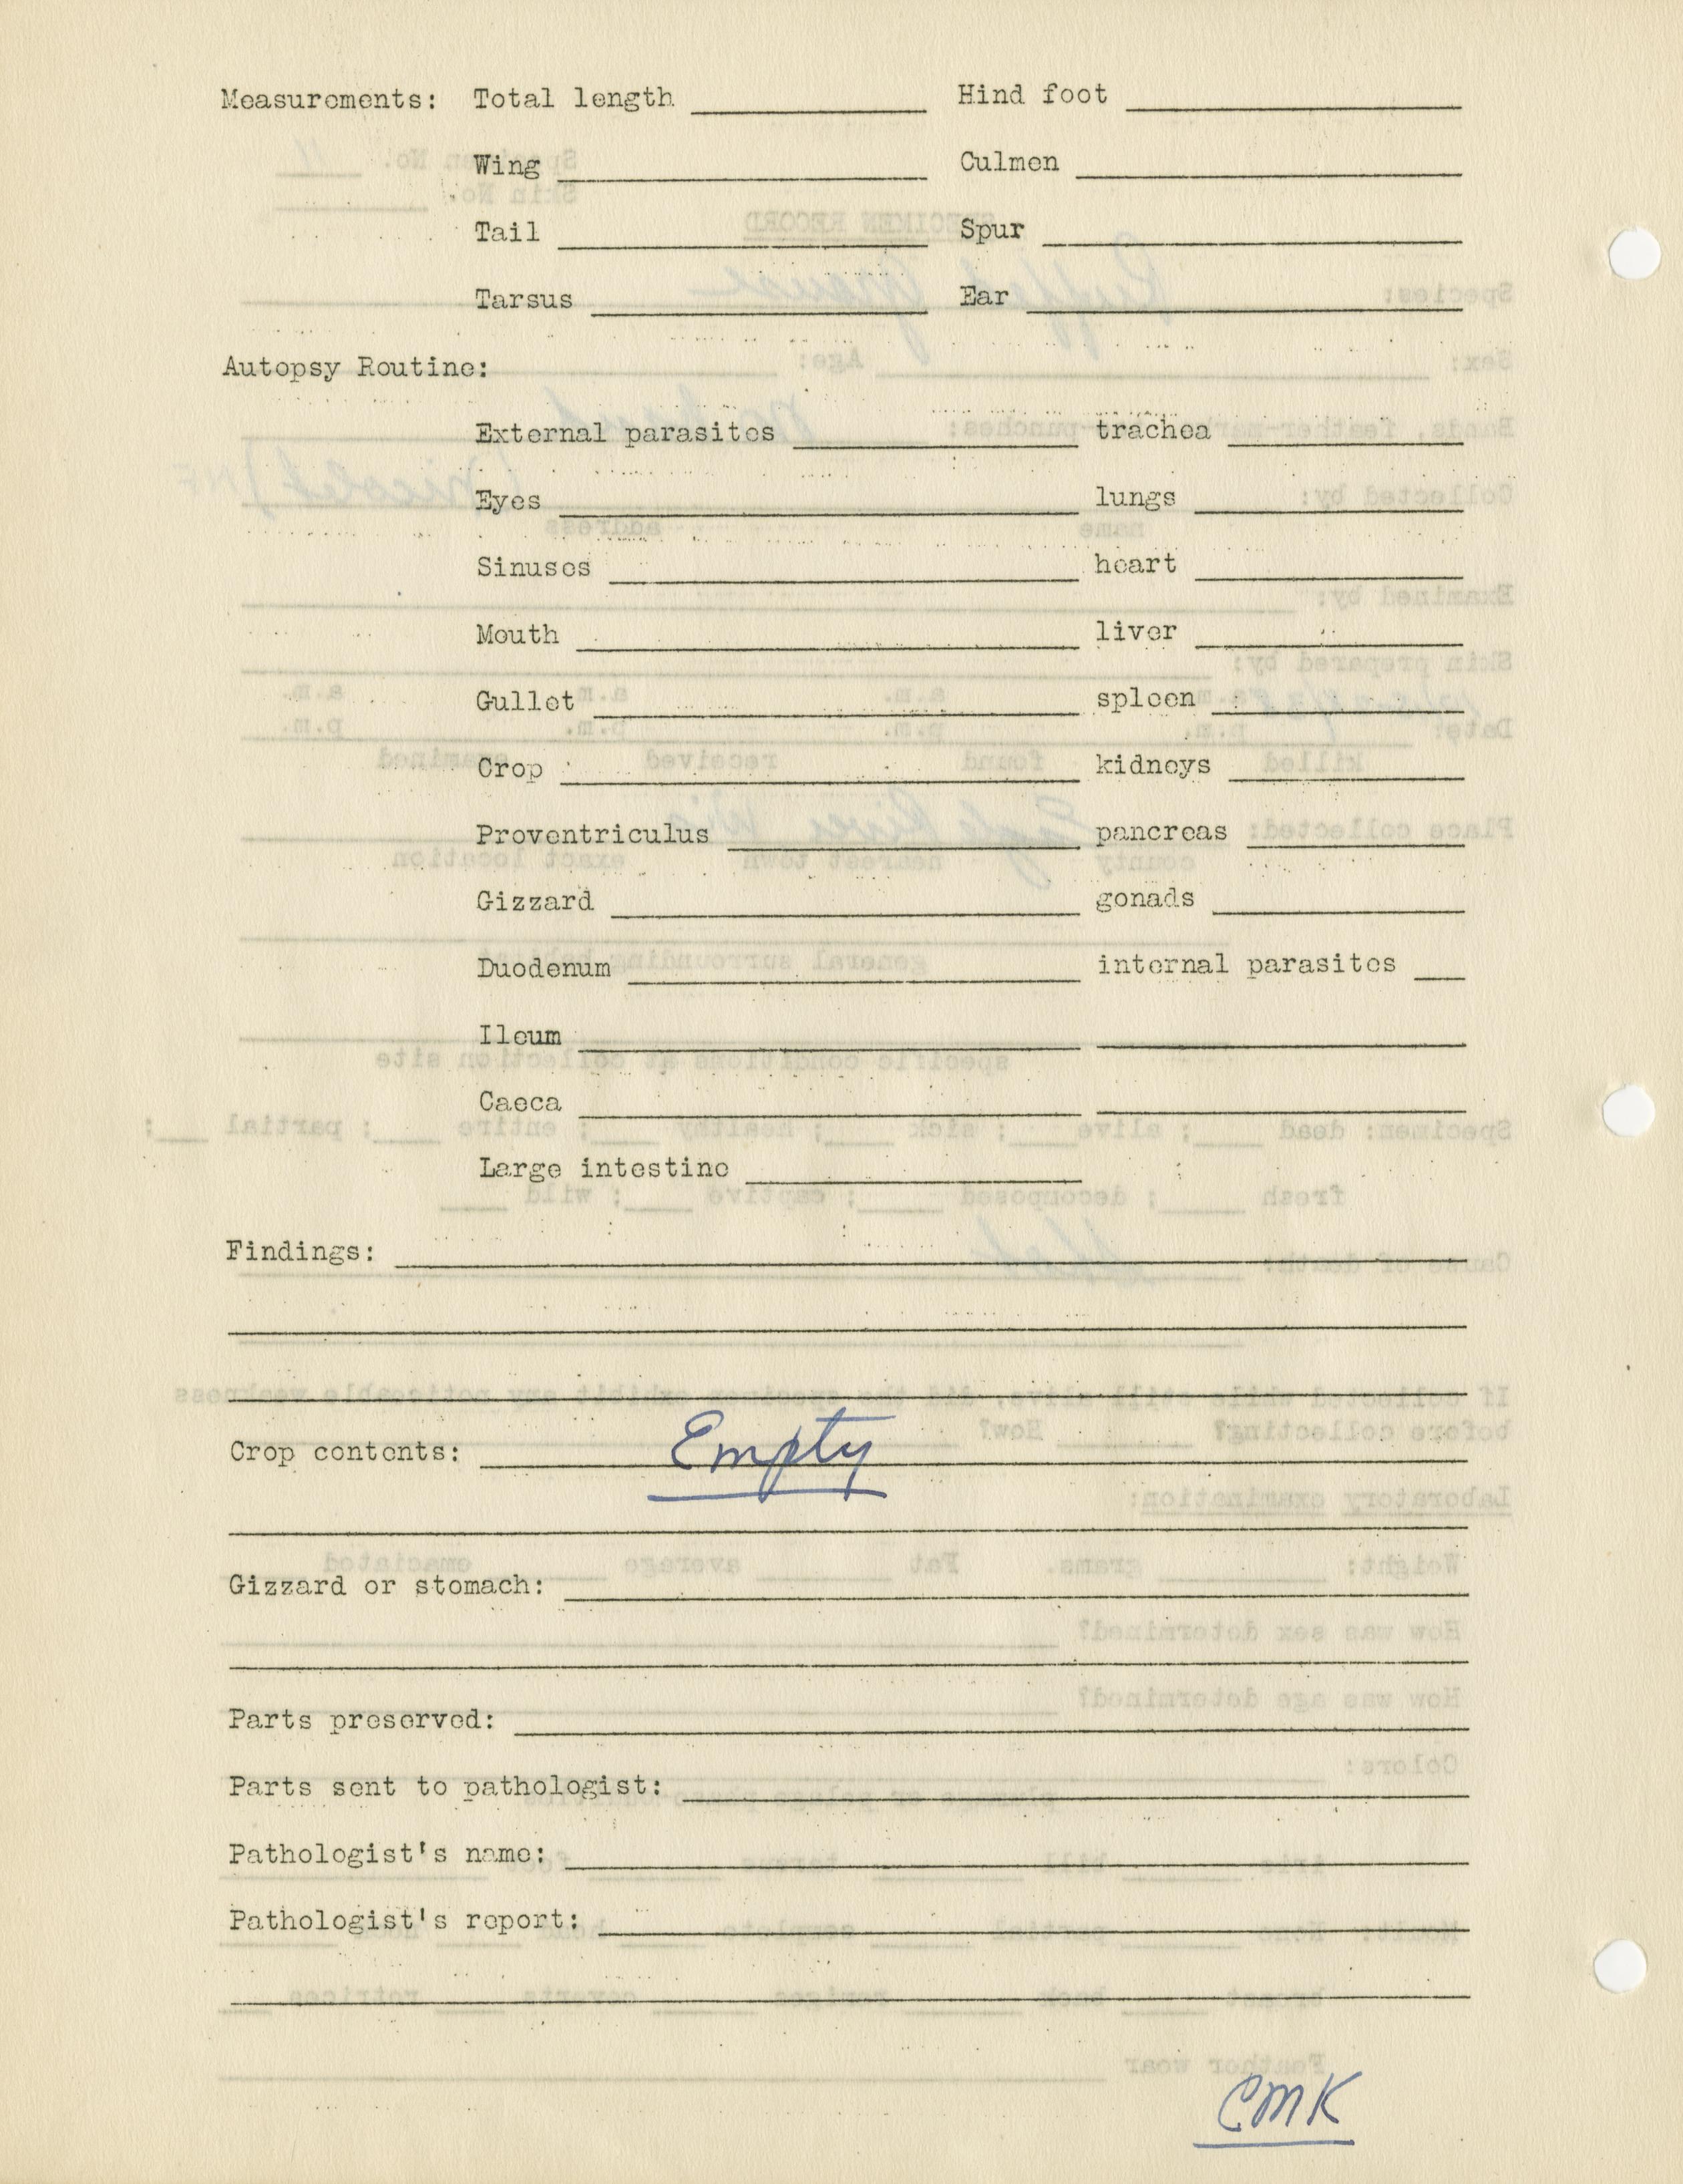 Measurements: Total length ____ Hind foot ____
Wing ____ Culmen ____
Tail ____ Spur ____
Tarsus ____ Ear ____
Autopsy Routine:
External parasites ____ trachea ____
Eyes ____ lungs ____
Sinuses ____ heart ____
Mouth ____ liver ____
Gullet ____ spleen ____
Crop ____ kidneys ____
Proventriculus ____ pancreas ____
Gizzard ____ gonads ____
Duodenum ____ internal parasites ____
Ileum ____
Caeca ____
Large intestine ____
Findings: ____
Crop contents: Empty
Gizzard or stomach: ____
Parts preserved: ____
Parts sent to pathologist: ____
Pathologist's name: ____
Pathologist's report: ____
CMK